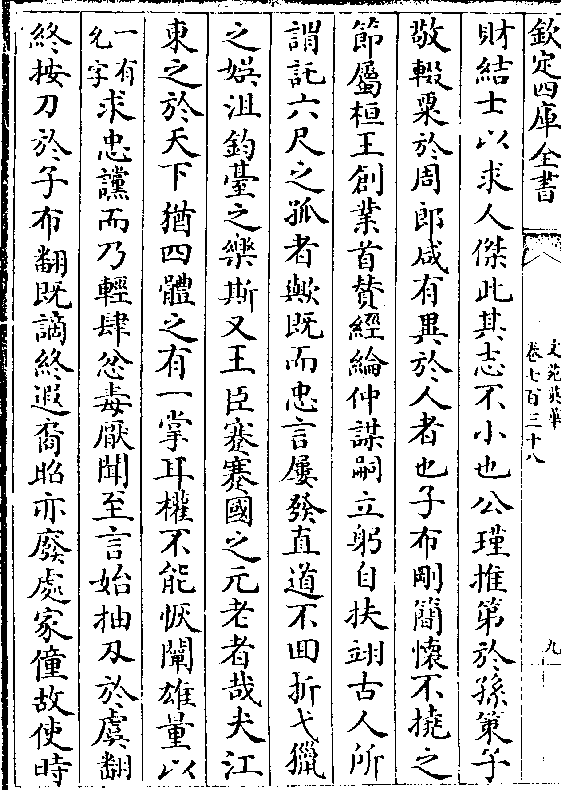 欽定四庫全書
文苑英華
卷七百三十八
九
財結士以求人傑此其志不小也公瑾推第於孫策子
敬輟粟於周郎咸有異於人者也子布剛簡懷不撓之
節屬桓王創業首贊經綸仲謀嗣立躬自扶翊古人所
謂託六尺之孤者歟既而忠言屢發直道不回折弋獵
之娛沮釣臺之樂斯又王臣蹇蹇國之元老者哉夫江
東之於天下猶四體之有一掌耳權不能恢闡雄量以
一有允字求忠讜而乃輕肆忿毒厭聞至言始抽刃於虞翻
終按刀於子布翻既謫終遐裔昭亦廢處家僮故使時